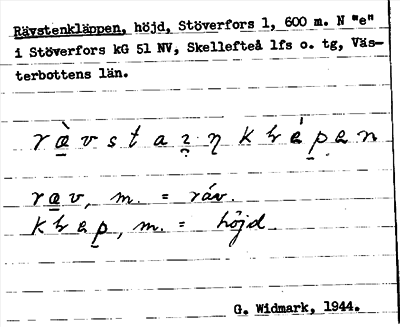 Rävstenkläppen, höjd, Stöverfors 1, 600 m. N "e"
i Stöverfors kG 51 NV, Skellefteå lfs o. tg, Väs-
terbottens län.
m. = räv.
m. = höjd
G. Widmark, 1944.